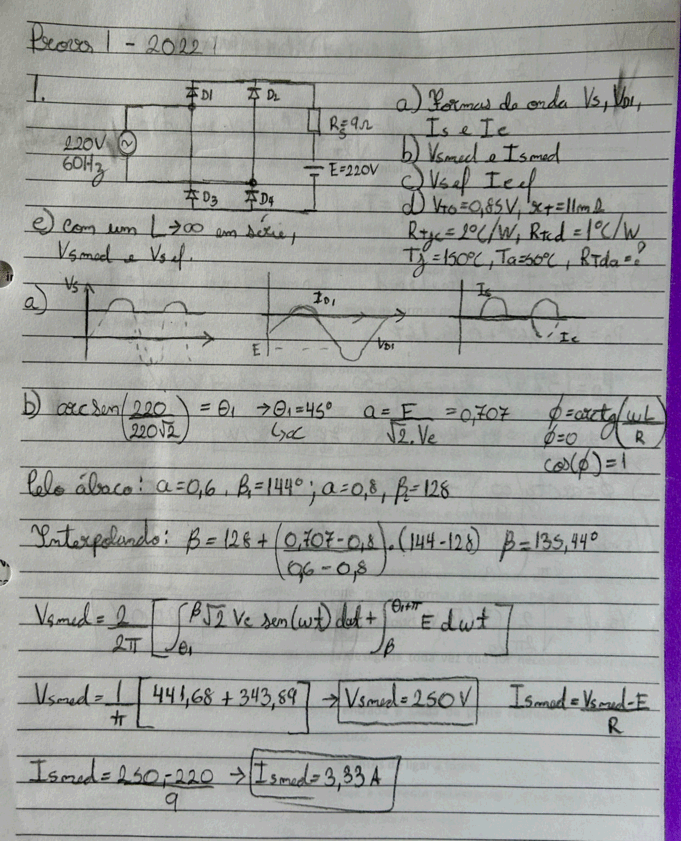 Prova 1 - 2022 1
1.
D1 D2
R=9Ω
220V
60Hz
E=220V
D3 D4
a) Formas de onda Vs, VD1,
Is e Ic
b) Vsmed e Ismed
c) Vsef Ief
d) VTO=0,85V, rT=11mΩ
Rtjc=2°C/W, Rtcd=1°C/W
Tj=150°C, Ta=50°C, RTda=?
e) com um L→∞ em série,
Vsmed e Vsef.
a)
Vs
ID1
E
VD1
Is
Ic
b) arcsen(220/220√2) = θ1 → θ1=45° a = E/√2.Ve = 0,707 ϕ=arctg(ωL/R)
↳α
ϕ=0
cos(ϕ)=1
Pelo ábaco: a=0,6, β1=144°; a=0,8, β2=128
Interpolando: β = 128 + (0,707-0,8/0,6-0,8).(144-128) β=135,44°
Vsmed = 2/2π [∫θ1^β √2 Ve sen(ωt) dωt + ∫β^θ1+π E dωt]
Vsmed = 1/π [441,68 + 343,89] → Vsmed=250V Ismed = Vsmed-E/R
Ismed = 250-220/9 → Ismed=3,33A